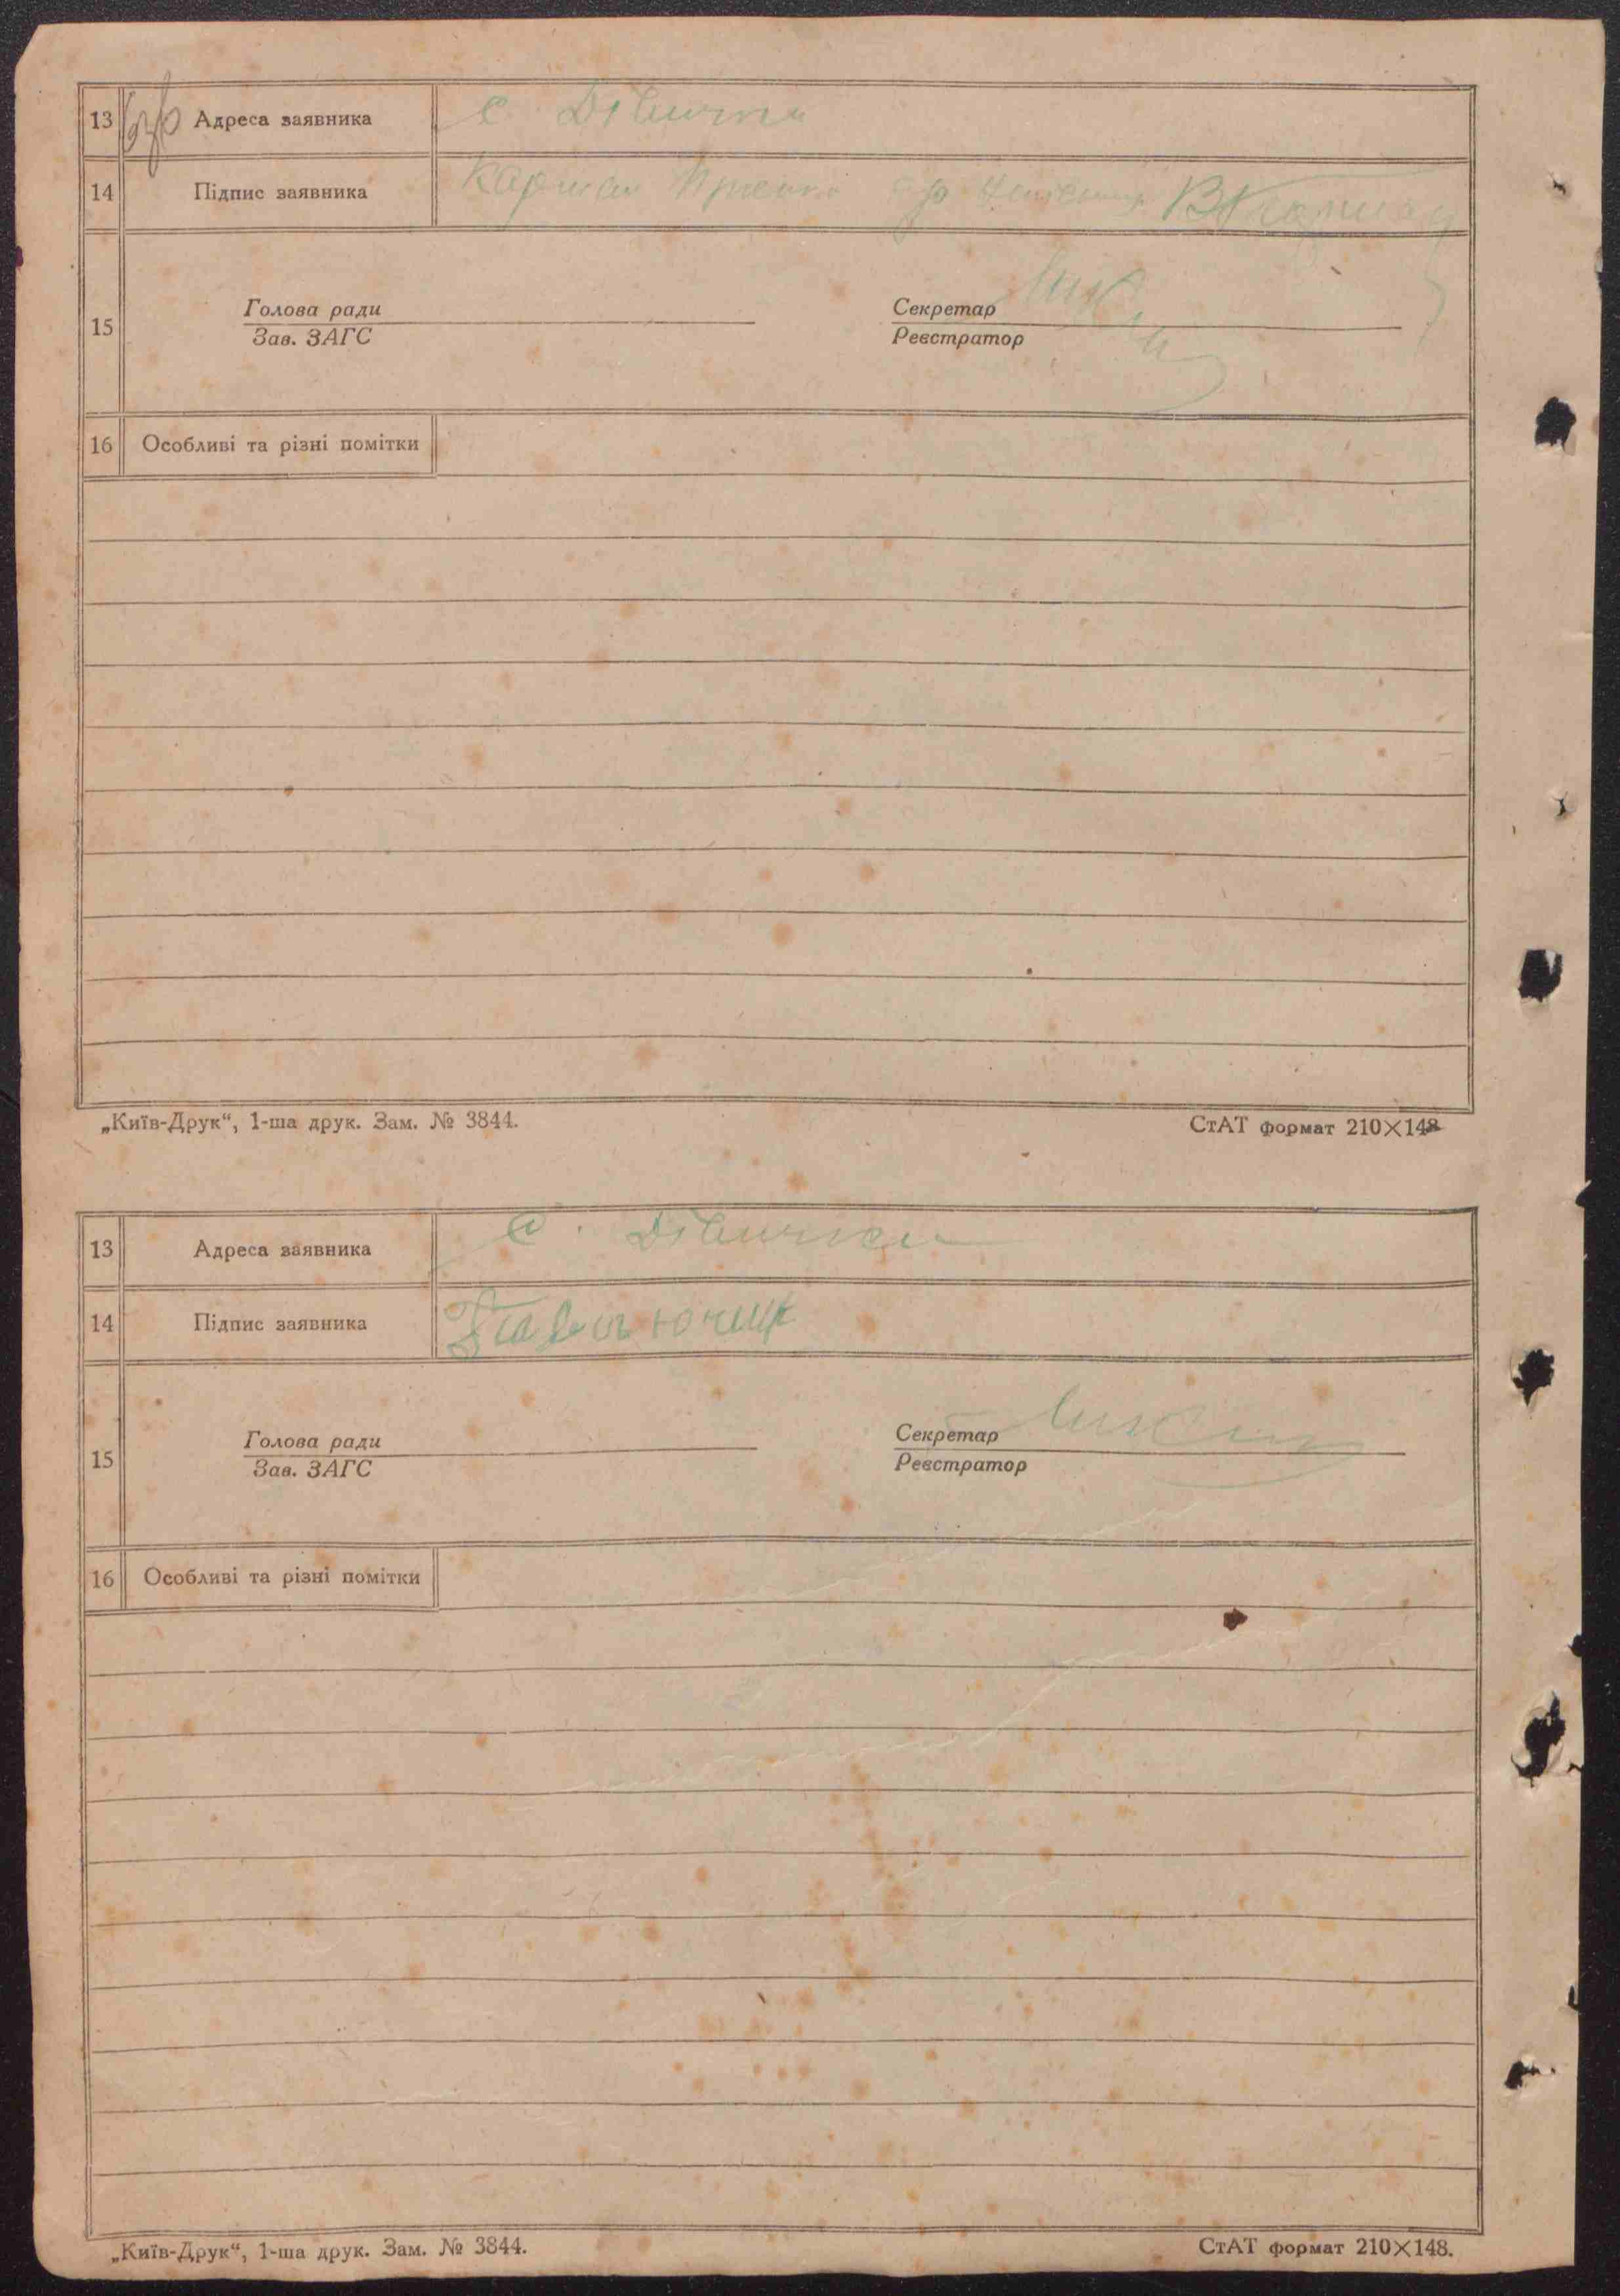 13 Адреса заявника с. Дівички
14 Підпис заявника
15 Голова ради Секретар
Зав. ЗАГС Реєстратор
16 Особливі та різні помітки
„Київ-Друк“, 1-ша друк. Зам. № 3844. СтАТ формат 210×148
13 Адреса заявника с. Дівички
14 Підпис заявника
15 Голова ради Секретар
Зав. ЗАГС Реєстратор
16 Особливі та різні помітки
„Київ-Друк“, 1-ша друк. Зам. № 3844. СтАТ формат 210×148.